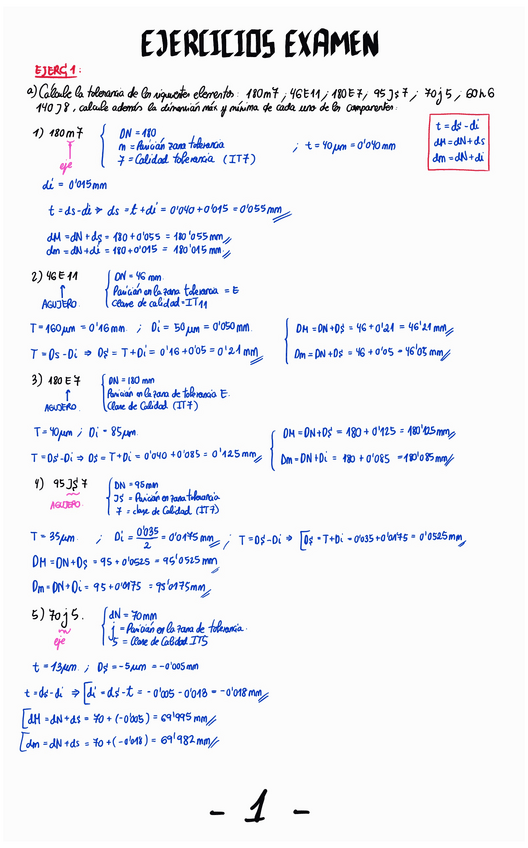 EJERCICIOS EXAMEN
EJERC 1:
a) Calcule la tolerancia de los siguientes elementos: 180m7, 46E11, 180E7, 95Js7, 70j5, 60h6
140J8, calcule además la dimensión máx y mínima de cada uno de los componentes.
1) 180m7
eje
DN = 180
m = Posición zona tolerancia
7 = Calidad tolerancia (IT7)
; t = 40μm = 0'040mm
t = ds - di
dM = dN + ds
dm = dN + di
di = 0'015mm
t = ds - di ⇒ ds = t + di = 0'040 + 0'015 = 0'055mm
dM = dN + ds = 180 + 0'055 = 180'055mm
dm = dN + di = 180 + 0'015 = 180'015mm
2) 46E11
AGUJERO
DN = 46 mm
Posición en la zona tolerancia = E
Clase de calidad = IT11
T = 160μm = 0'16mm ; Di = 50μm = 0'050mm
T = Ds - Di ⇒ Ds = T + Di = 0'16 + 0'05 = 0'21mm
DM = DN + Ds = 46 + 0'21 = 46'21mm
Dm = DN + Ds = 46 + 0'05 = 46'05mm
3) 180E7
AGUJERO
DN = 180 mm
Posición en la zona de tolerancia E.
Clase de Calidad (IT7)
T = 40μm ; Di = 85μm
T = Ds - Di ⇒ Ds = T + Di = 0'040 + 0'085 = 0'125mm
DM = DN + Ds = 180 + 0'125 = 180'125mm
Dm = DN + Di = 180 + 0'085 = 180'085mm
4) 95 Js 7
AGUJERO
DN = 95mm
Js = Posición en zona tolerancia
7 = clase de Calidad (IT7)
T = 35μm ; Di = 0'035/2 = 0'0175mm ; T = Ds - Di ⇒ [Ds = T + Di = 0'035 + 0'0175 = 0'0525mm
DM = DN + Ds = 95 + 0'0525 = 95'0525mm
Dm = DN + Di = 95 + 0'0175 = 95'0175mm
5) 70j5.
eje
dN = 70mm
j = Posición en la zona de tolerancia.
5 = Clase de Calidad IT5
t = 13μm ; Ds = -5μm = -0'005mm
t = ds - di ⇒ [di = ds - t = -0'005 - 0'013 = -0'018mm
[dM = dN + ds = 70 + (-0'005) = 69'995mm
[dm = dN + ds = 70 + (-0'018) = 69'982mm
- 1 -